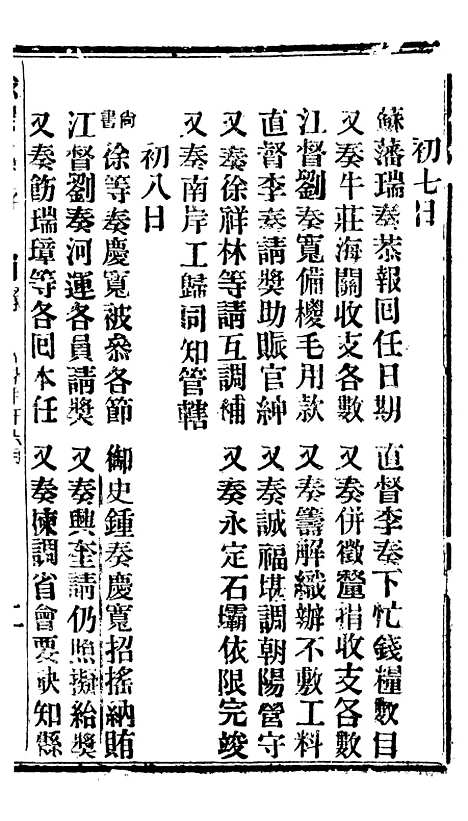 初七日
蘇藩瑞奏恭報回任日期　直督李奏下忙錢糧數目
又奏牛莊海關收支各數　又奏併徵釐捐收支各數
江督劉奏寬備櫻毛用款　又奏籌解織辦不敷工料
直督李奏請獎助賑官紳　又奏誠福堪調朝陽營守
又奏徐祥林等請互調補　又奏永定石壩依限完竣
又奏南岸工歸同知管轄
初八日
尚書徐等奏慶寬被叅各節　御史鍾奏慶寬招搖納賄
江督劉奏河運各員請獎　又奏興奎請仍照擬給獎
又奏飭瑞璋等各回本任　又奏揀調省會要缺知縣